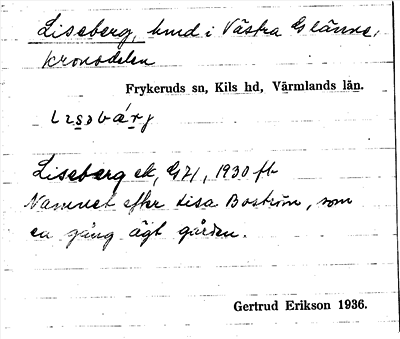 Liseberg, hmd i Västra Glänne,
kronodelen
Frykeruds sn, Kils hd, Värmlands län.
Liseberg ek, G71, 1930 fb
Namnet efter Lisa Boström, som
en gång ägt gården.
Gertrud Erikson 1936.